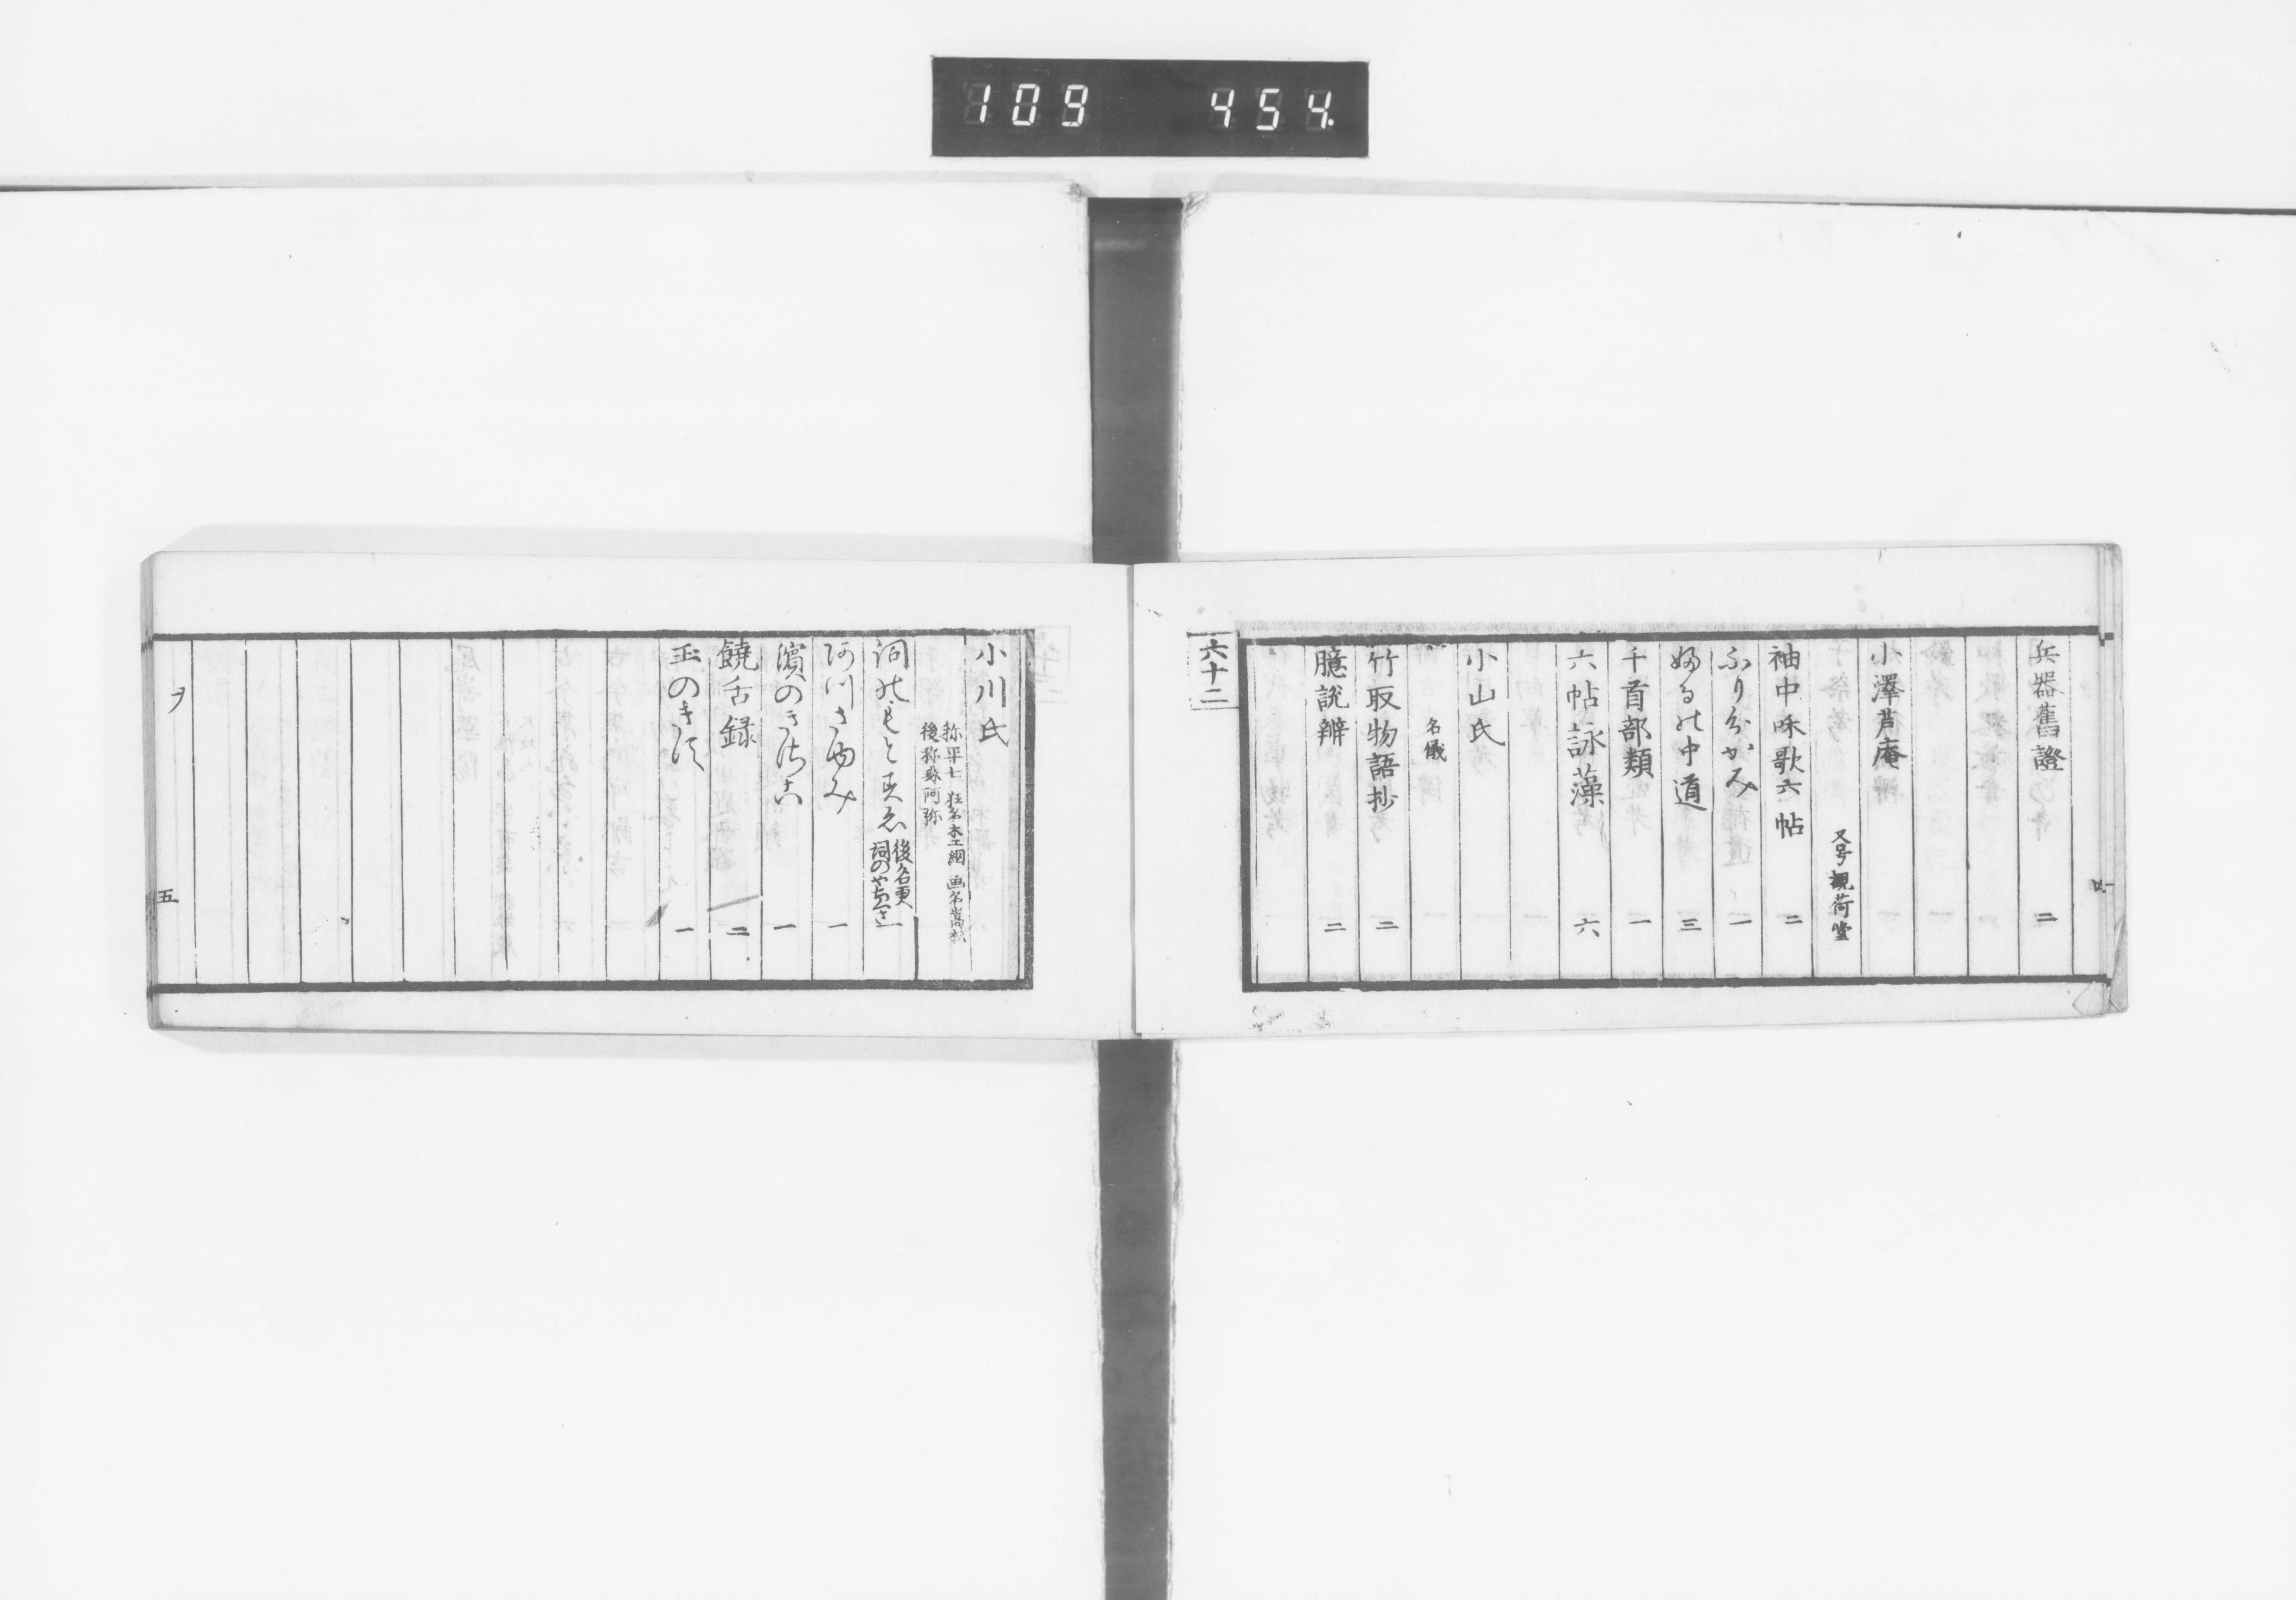 109 454.
兵器舊證 二
小澤芦庵
又号觀荷堂
袖中咊歌六帖 二
ふり分かみ 一
ふるの中道 三
千首部類 一
六帖詠藻 六
小山氏
名儀
竹取物語抄 二
臆説辨 二
六十二
小川氏
弥平七 狂名木工網 画名嵩松
後称森阿弥
詞のもとすゑ 後名更詞のやちくさ 一
濱のきさご 一
饒舌録 二
玉のきず 一
ヲ
五